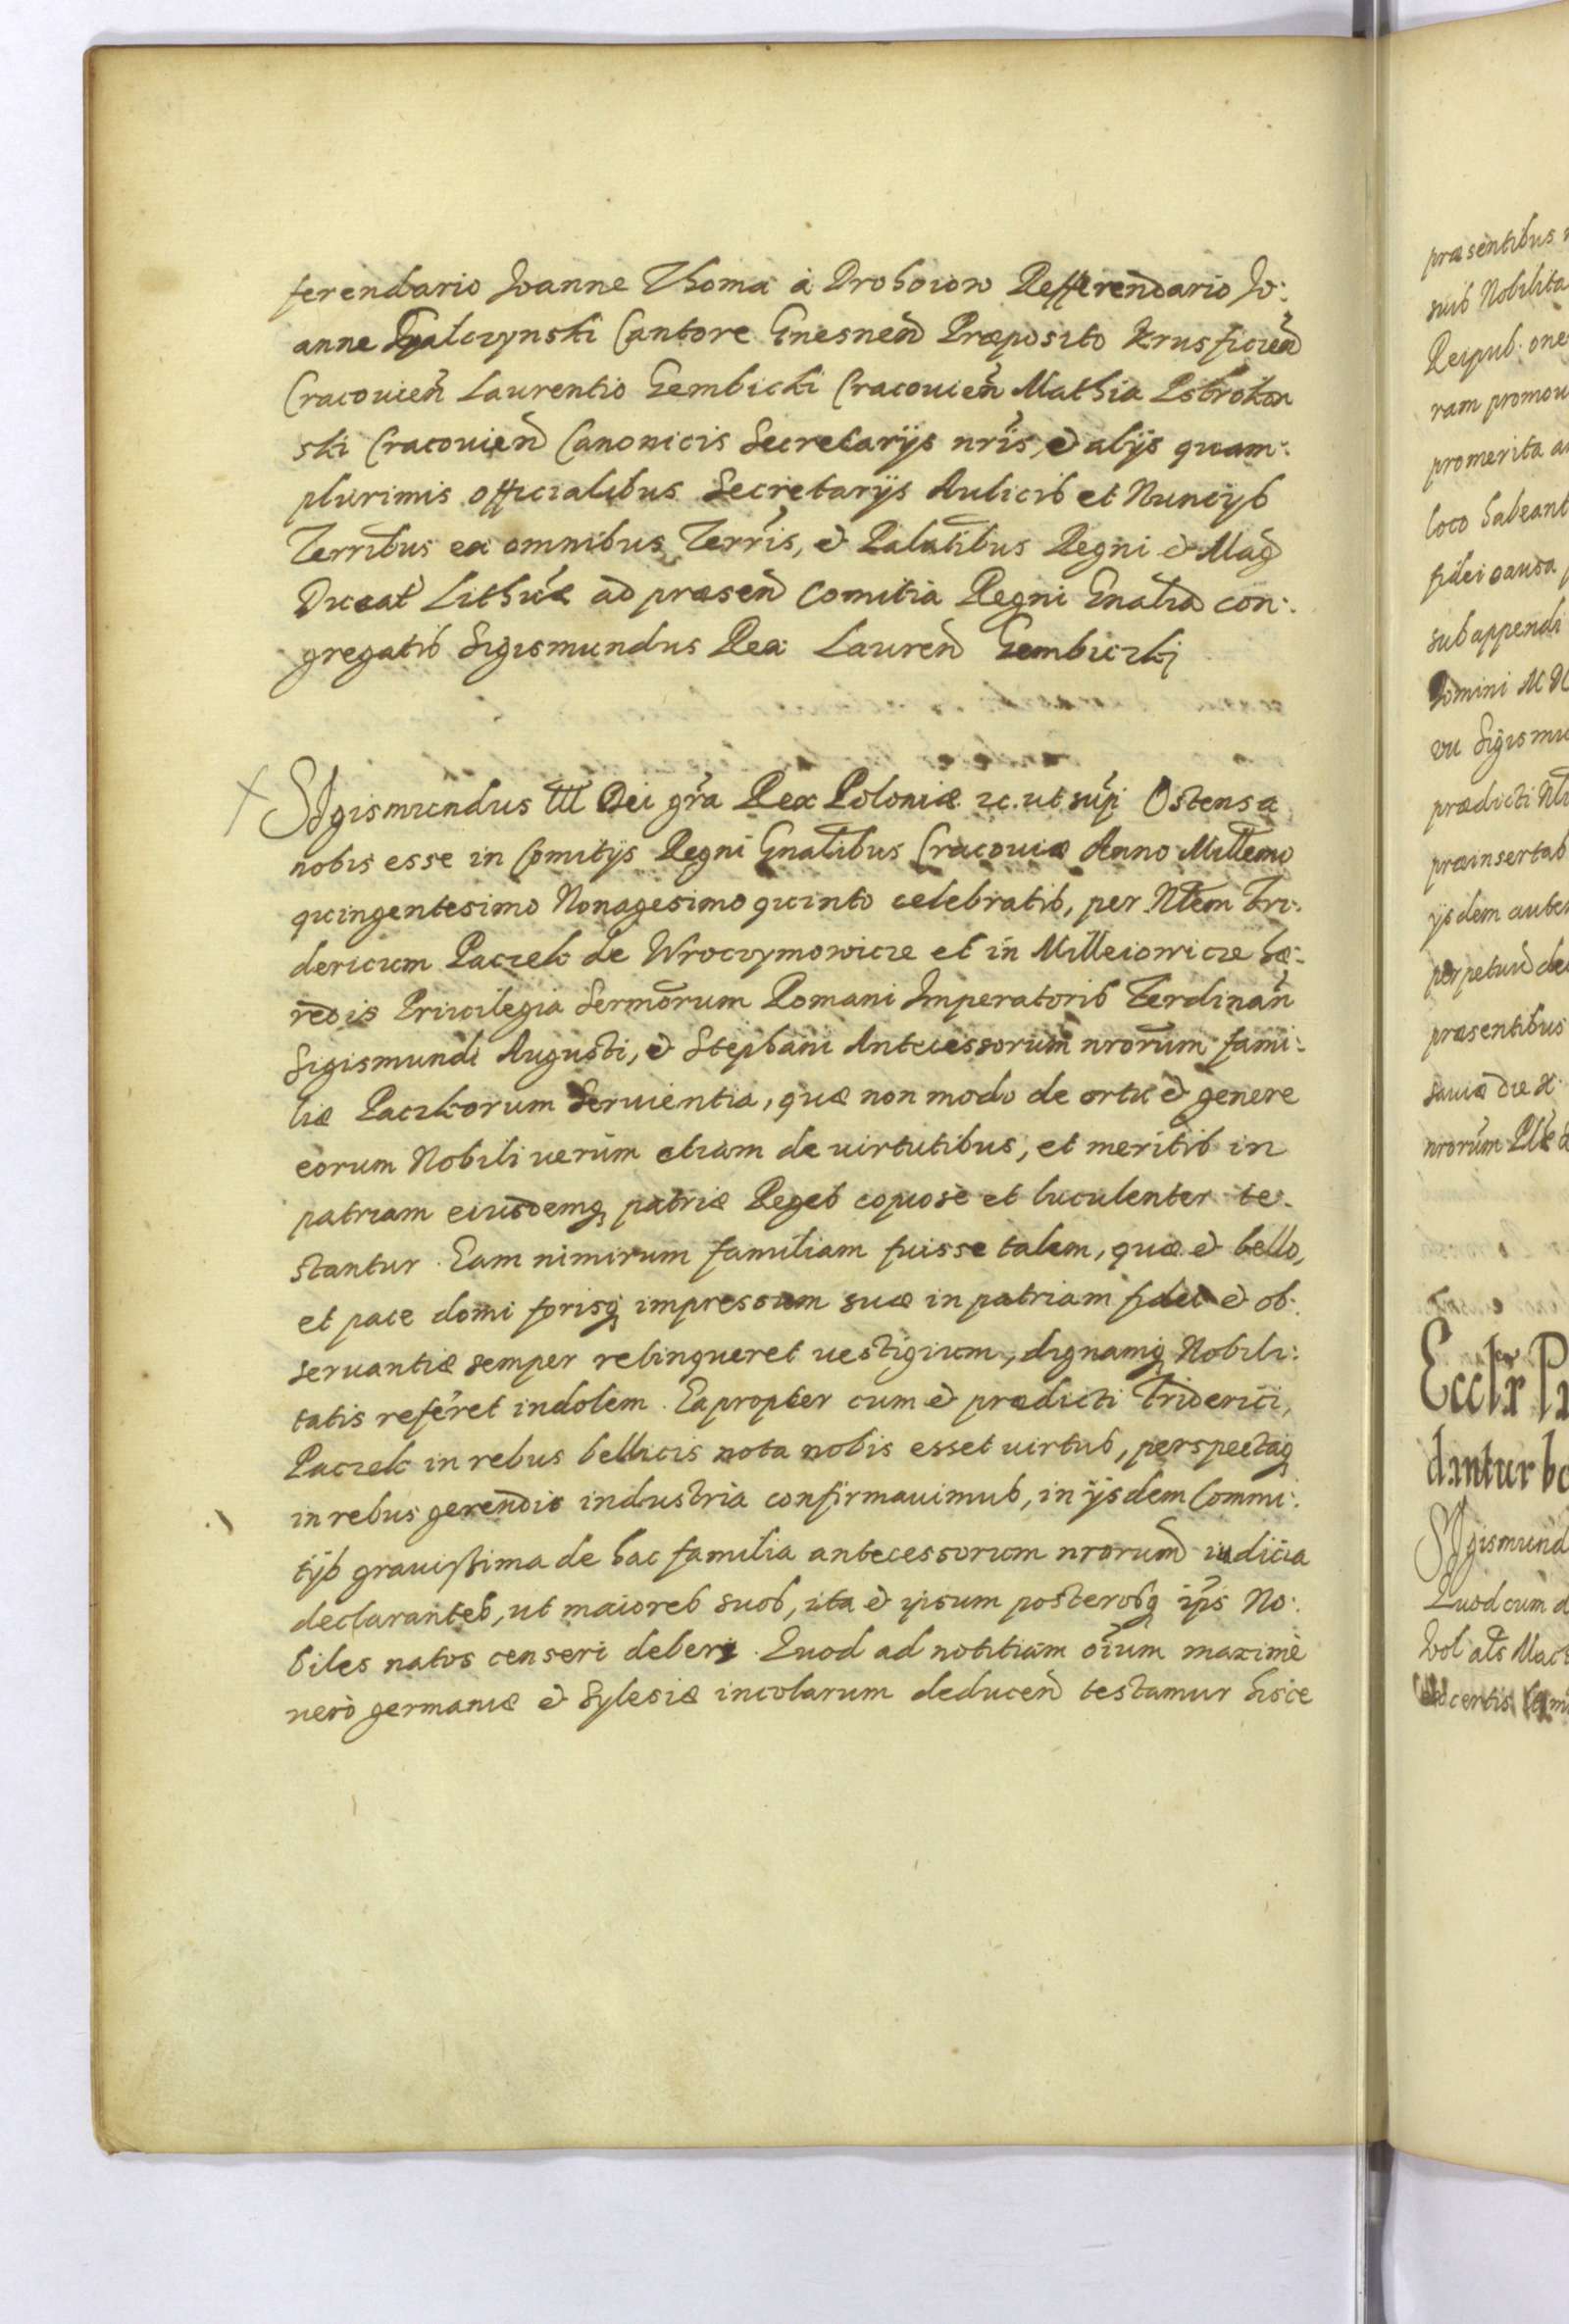 ferendario Joanne Thoma à Drohoiow Refferendario Jo:
anne Gyalczynski Cantore Gnesnen Præposito Krusficien
Cracouien Laurentio Gembicki Cracouien Mathia Pstrokon
ski Cracouien Canonicis Secretarijs nris, et alijs quam:
plurimis officialibus Secretarijs Aulicis et Nuncijs
Terribus ex omnibus Terris, et Palatibus Regni et Mag
Ducat Lithuæ ad præsen Comitia Regni Gnalia con:
gregatis Sigismundus Rex Lauren Gembiczkj
Sigismundus III Dei gra Rex Poloniæ zc. ut supi Ostensa
nobis esse in Comitijs Regni Gnalibus Cracouiæ Anno Millemo
quingentesimo Nonagesimo quinto celebratis, per Nlem Fri:
dericum Paczek de Wroczymowicze et in Milleiowicze hæ:
redis Priuilegia Sermorum Romani Imperatoris Ferdinan
Sigismundi Augusti, et Stephani Antecessorum nrorum fami:
liæ Paczkorum Seruientia, quæ non modo de ortu et genere
eorum Nobili uerùm etiam de uirtutibus, et meritis in
patriam eiusdemq patriæ Reges copiosè et luculenter te:
stantur. Eam nimirum familiam fuisse talem, quæ et bello,
et pace domi forisq impressum suæ in patriam fidei et ob:
seruantiæ semper relinqueret uestigium, dignamq Nobili:
tatis referet indolem. Eapropter cum et prædicti Friderici,
Paczek in rebus bellicis nota nobis esset uirtus, perspectaq
in rebus gerendis industria confirmauimus, in ijsdem Commi:
tijs grauissima de hac familia antecessorum nrorum iudicia
declarantes, ut maiores suos, ita et ipsum posterosq ips No:
biles natos censeri debere. Quod ad notitiam oium maximè
uerò germaniæ et Sylesiæ incolarum deducen testamur hisce
præsentibus
suis Nobilita
Reipub. one
ram promou
promerita a
loco habeant
fidei causa
sub appendi
Domini M D
vu Sigismu
prædicti Nli
præinsertas
ijsdem aute
perpetuò de
præsentibus
sauiæ die X
nrorum
Ecclr
dintur bo
Sigismund
Quod cum d
Wol als Mac
certis